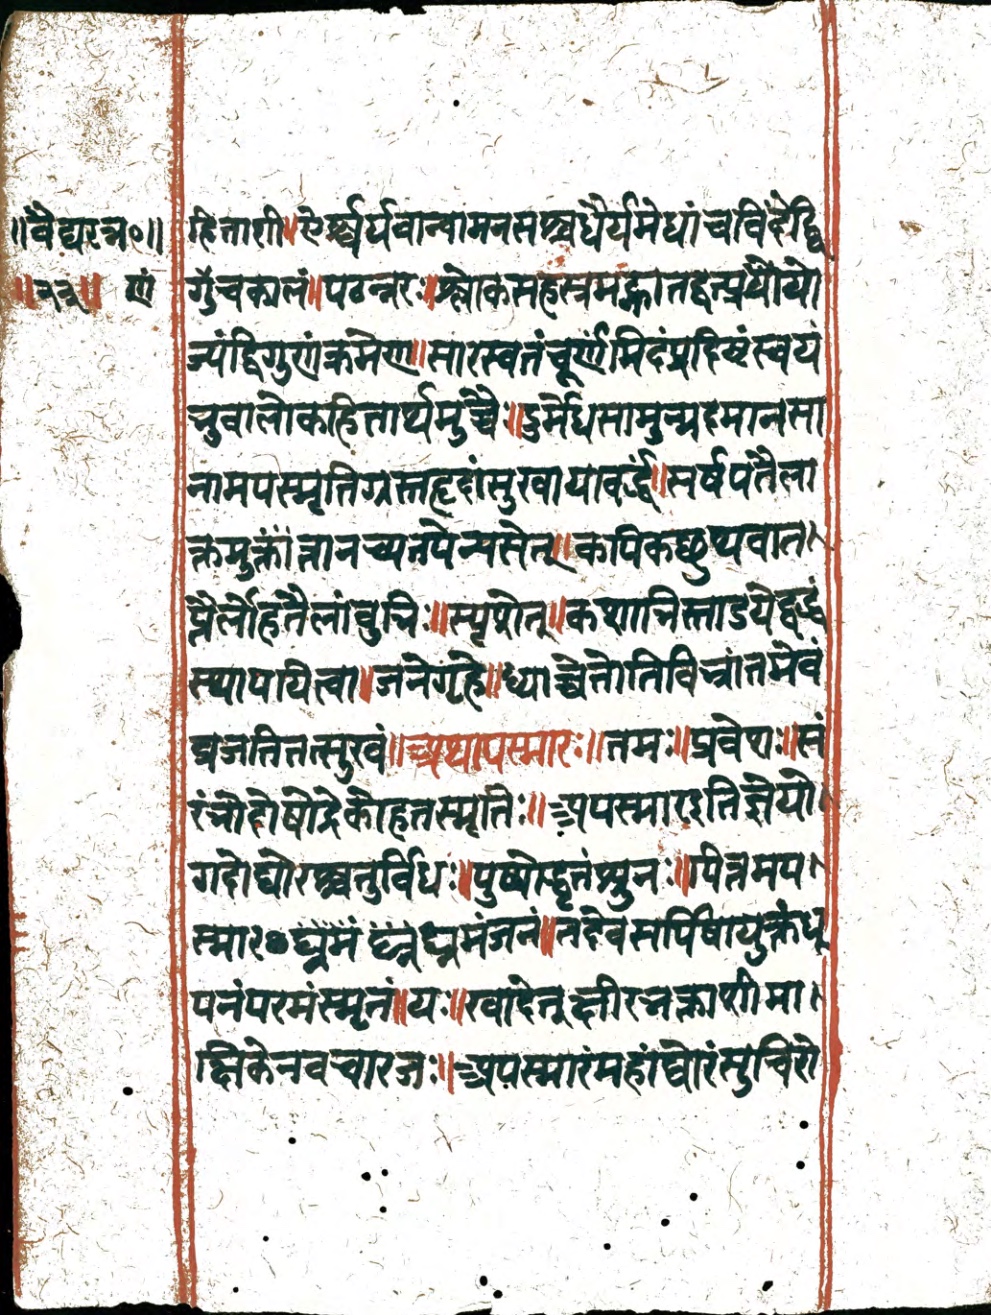 ॥वैद्यरत्न०॥
॥२३॥ णं
हिताशी॥ऐश्वर्यवान्वामनसश्च धैर्यमेधां च विंदेद्वि
गुं च कालं॥पठन्नरः॥श्लोकसहस्रमह्ना तद्वत्प्रयो यो
ज्यं द्विगुणं क्रमेण॥सारस्वतं चूर्णमिदं प्रदिष्टं स्वयं
भुवा लोकहितार्थमुच्चैः॥दुर्मेधसामुन्मदमानसा
नामपस्मृतिग्रस्तहृदां सुखाय
सर्षपतैला
क्तमुक्तां
न्यसेत्॥कपिकछुथवा त
प्तैर्लोहतैलांबुभिः॥स्पृशेत्॥कशाभिस्ताडयेद्वद्धं
स्थापयित्वा॥जने गृहे॥
व्रजति तत्सुखं॥अथापस्मारः॥तमः॥प्रवेशः॥सं
रंभो दोषोद्रेको हतस्मृतेः॥अपस्मार इति ज्ञेयो
गदो घोरश्चतुर्विधः॥पुष्योद्धृतं शुनः॥पित्तमप
स्मार
घ्नमंजनं॥तदेव सर्पिषा युक्तं धू
पनं परमं स्मृतं॥यः॥खादेत् क्षीरभक्ताशी मा
क्षिकेन वचारजः॥अपस्मारं महांघोरं सुचिरो